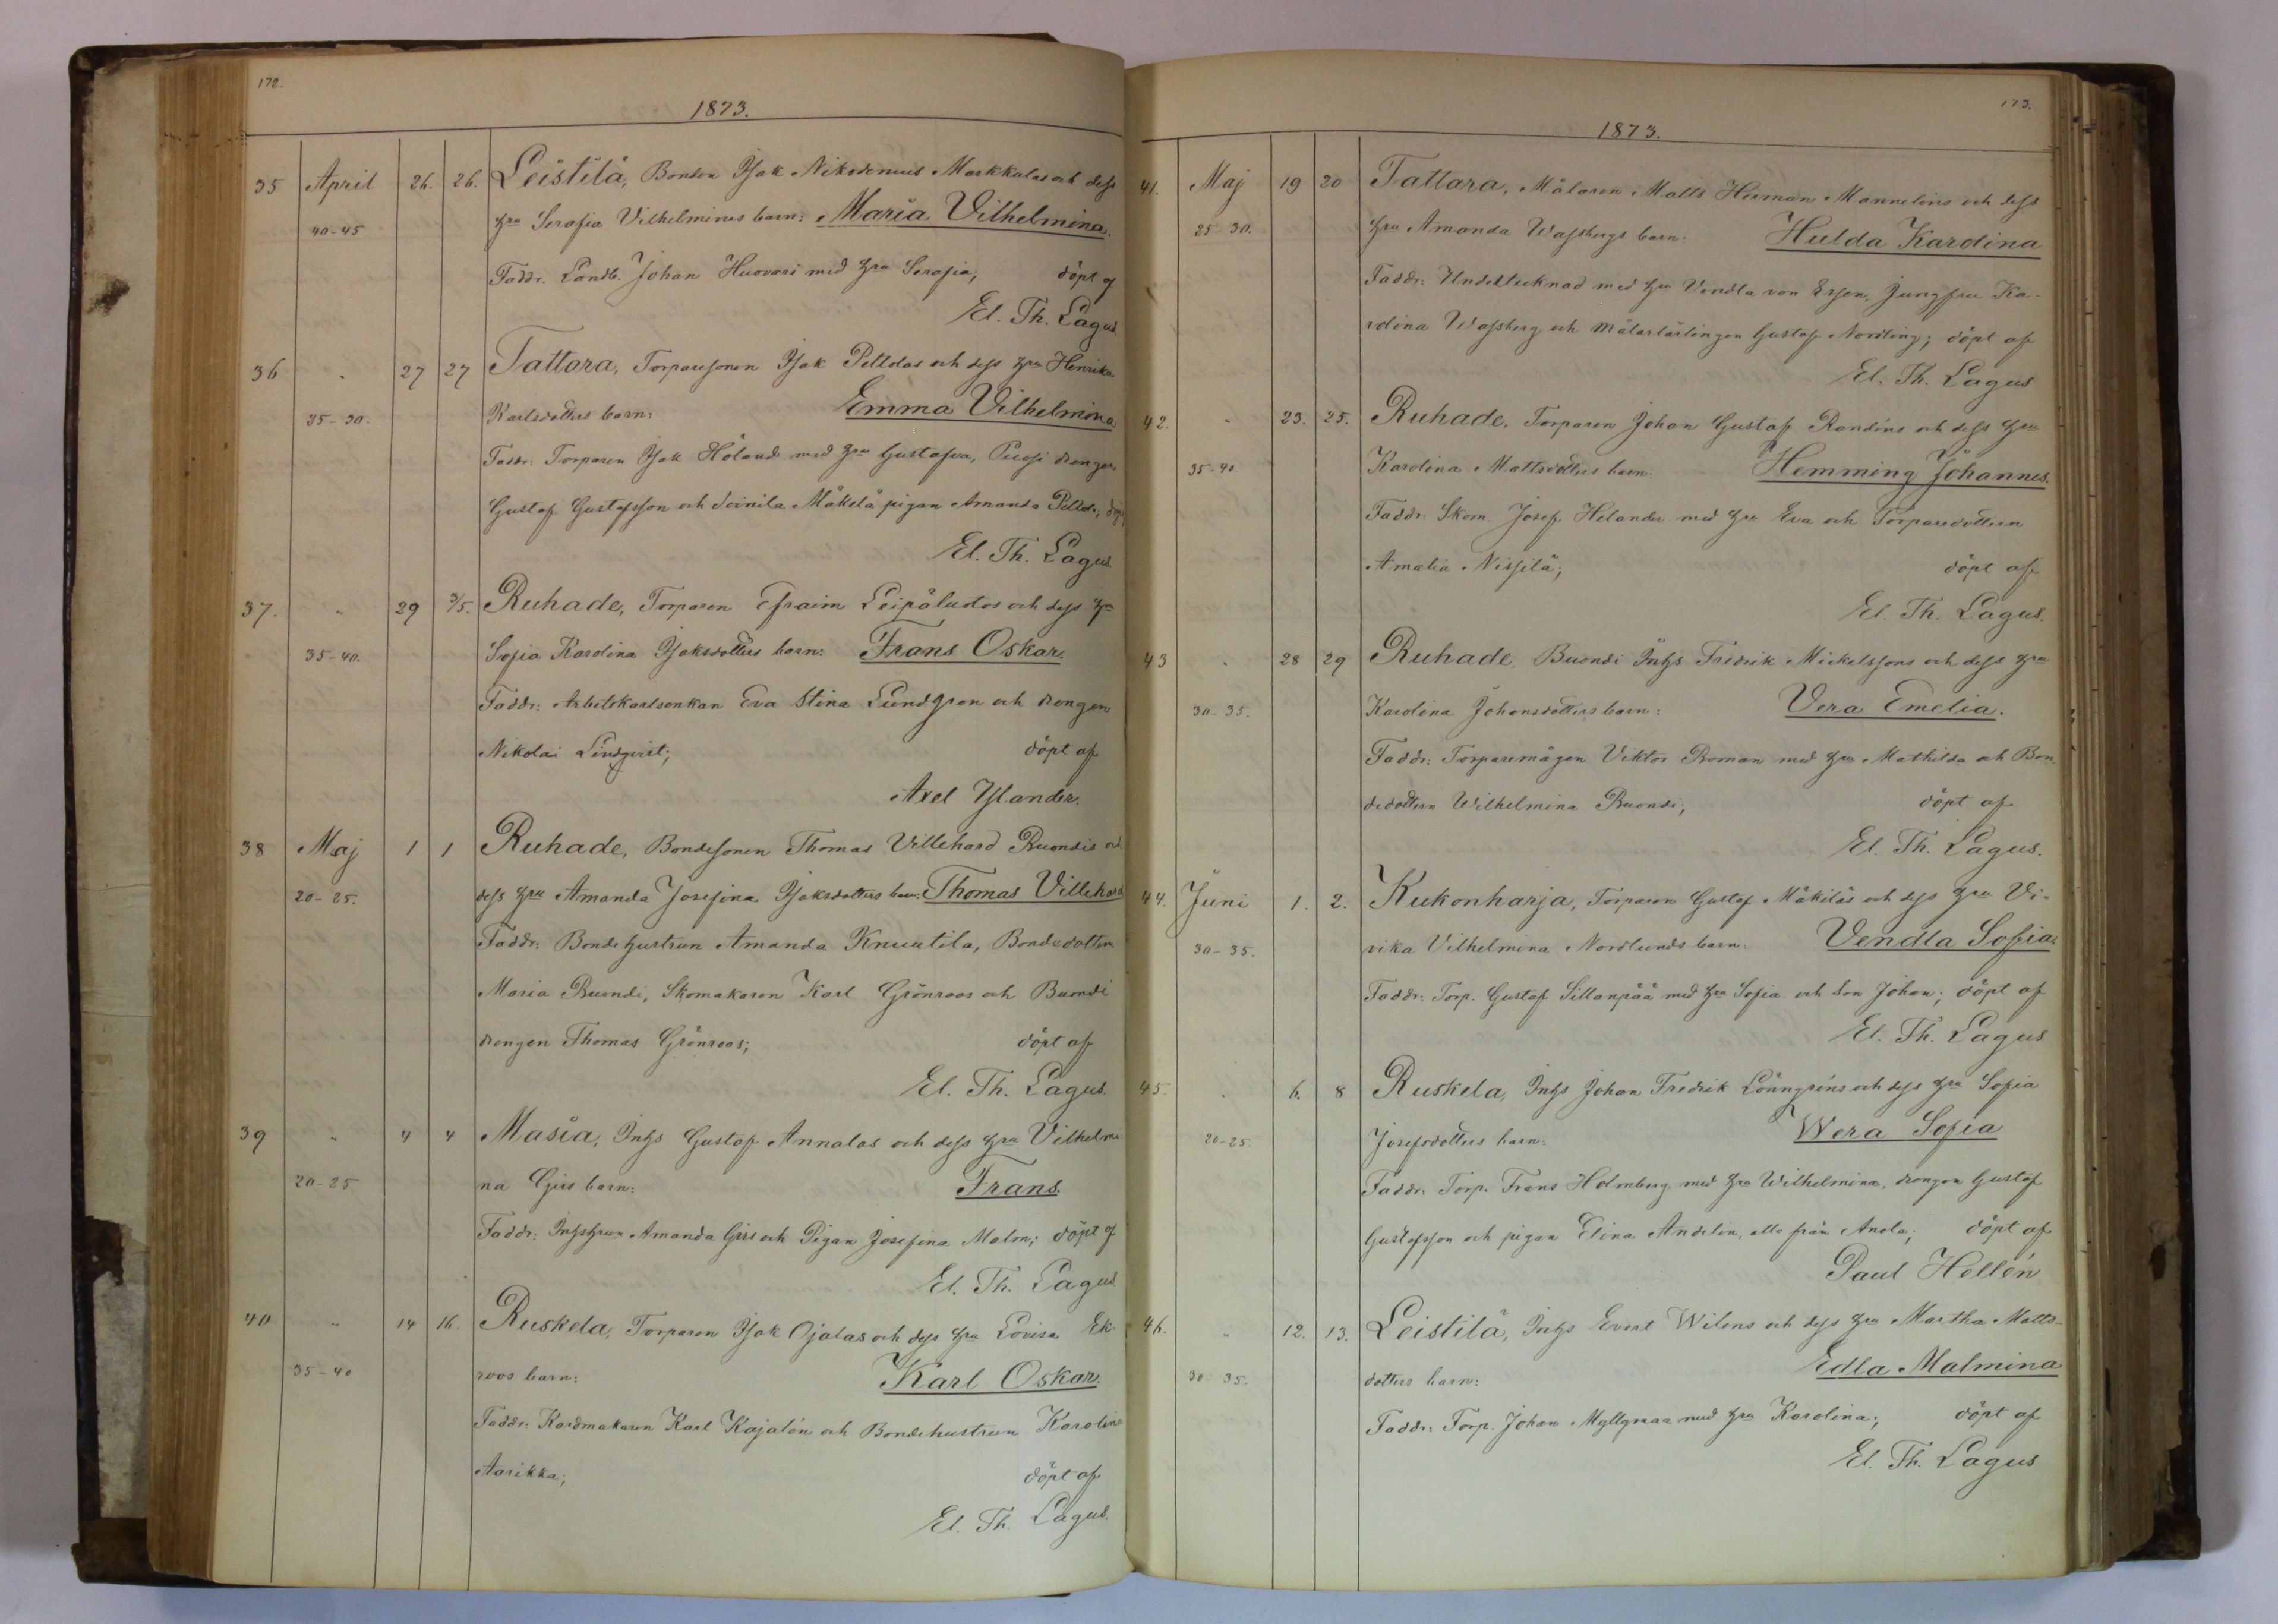 172.
1873.
35 April 26. 26. Leistilä, Bonden Isak Nikodemus Markkulas och dess
40-45 hru Serafia Vilhelminas barn: Maria Vilhelmina.
Faddr. Landb. Johan Huovari med hru Serafia; döpt af
El. Th. Lagus
36 " 27 27 Tattara, Torparesonen Isak Pelldas och dess hru Henrika
25-30. Karlsdotters barn: Emma Vilhelmina
Faddr: Torparen Isak Höland med hru Gustafva, drengen
Gustaf Gustafsson och Mäkelä pigan Amanda
El. Th. Lagus.
37. " 29 3/5. Ruhade, Torparen Efraim Leipäluotos och dess hru
35-40. Sofia Karolina Isaksdotters barn: Frans Oskar.
Faddr: Arbetskarlsenkan Eva Stina Lundgren och drengen
Nikolai Lindqvist; döpt af
Axel Ylander.
38 Maj 1 1 Ruhade, Bondesonen Thomas Villehard Buondis och
20-25. dess hru Amanda Josefina Isaksdotters barn: Thomas Villehard
Faddr: Bondehustrun Amanda Knuutila, Bondedottern
Maria Buondi, Skomakaren Karl Grönroos och Buondi
drengen Thomas Grönroos; döpt af
El. Th. Lagus.
39 " 4 4 Masia, Inhs Gustaf Annalas och dess hru Vilhelmi
20-25 na Girs barn: Frans.
Faddr: Inhshrun Amanda Girs och Pigan Josefina Malm; döpt af
El. Th. Lagus.
40 " 14 16. Ruskela, Torparen Isak Ojalas och dess hru Lovisa Ek-
35-40 roos barn: Karl Oskar.
Faddr: Kardmakaren Karl Kajalén och Bondehustrun Karolina
Aarikka; döpt af
El. Th. Lagus.
173.
1873.
41. Maj 19 20 Tattara, Målaren Matts Herman Mannelins och dess
25-30. hru Amanda Wassbergs barn: Hulda Karolina
Faddr: Undertecknad med hru Vendla von Essen, Jungfru Ka-
rolina Wassberg och målarlärlingen Gustaf Nordling; döpt af
El. Th. Lagus
42. " 23. 25. Ruhade, Torparen Johan Gustaf Randéns och dess hru
35-40 Karolina Mattsdotters barn: Hemming Johannes.
Faddr: Skom. Josef Helander med hru Eva och Torparedottern
Amalia Nissilä; döpt af
El. Th. Lagus.
43 " 28 29 Ruhade, Buondi Inhs Fredrik Mickelssons och dess hru
30-35. Karolina Johansdotters barn: Vera Emelia.
Faddr: Torparemågen Viktor Roman med hru Mathilda och Bon
dedottern Wilhelmina Buondi; döpt af
El. Th. Lagus.
44. Juni 1. 2. Kukonharja, Torparen Gustaf Mäkiläs och dess hru Vi-
30-35. vika Vilhelmina Nordlunds barn: Vendla Sofia.
Faddr: Torp. Gustaf Sillanpää med hru Sofia och son Johan; döpt af
El. Th. Lagus
45. " 6. 8 Ruskela, Inhs Johan Fredrik Lönngréns och dess hru Sofia
20-25. Josefsdotters barn: Wera Sofia
Faddr: Torp. Frans Holmberg med hru Wilhelmina, drengen Gustaf
Gustafsson och pigan Elina Andelin, alla från Anola; döpt af
Paul Hellén
46. " 12. 13. Leistilä, Inhs Evert Wilens och dess hru Martha Matts-
30-35. dotters barn: Edla Malmina
Faddr: Torp. Johan Myllymaa med hru Karolina; döpt af
El. Th. Lagus